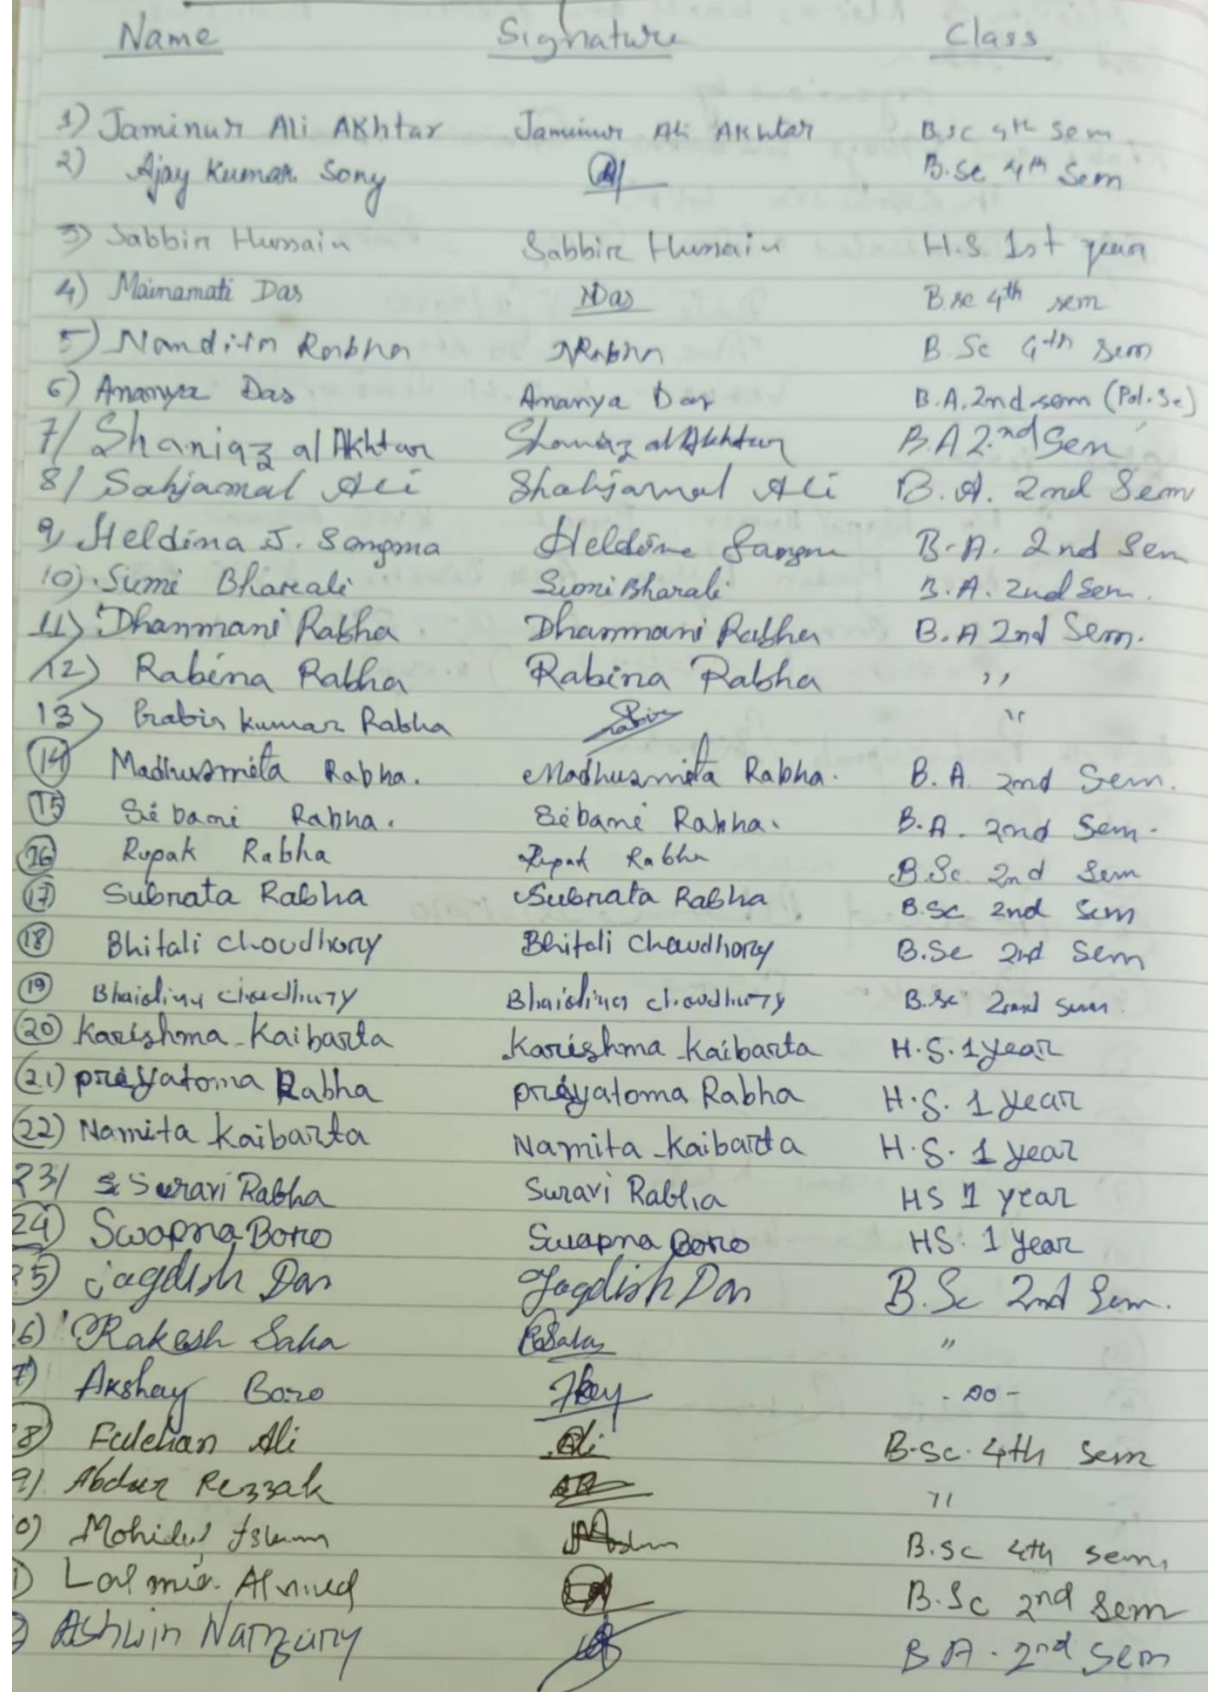 Name Signature Class
1) Jaminur Ali Akhtar Jaminur Ali Akhtar B.sc 4th sem
2) Ajay Kumar Sony B.Sc 4th Sem
3) Sabbir Hussain Sabbir Hussain H.S. 1st year
4) Mainamati Das NDas B.sc 4th sem
5) Nandita Rabha NRabha B.Sc 4th Sem
6) Ananya Das Ananya Das B.A. 2nd sem (Pol. Sc)
7/ Shaniaz al Akhtar Shaniaz al Akhtar B.A 2nd Sem
8/ Sahjamal Ali Shahjamal Ali B.A. 2nd Sem
9, Heldina J. Sangma Heldina Sangma B.A. 2nd Sem
10). Sumi Bharali Sumi Bharali B.A. 2nd Sem.
11) Dhanmani Rabha Dhanmani Rabha B.A 2nd Sem.
12) Rabina Rabha Rabina Rabha ,,
13) Prabin Kumar Rabha "
14 Madhusmita Rabha. Madhusmita Rabha. B.A. 2nd Sem.
15 Sibani Rabha. Sibani Rabha. B.A. 2nd Sem.
16 Rupak Rabha Rupak Rabha B.Sc. 2nd Sem
17 Subrata Rabha Subrata Rabha B.Sc 2nd Sem
18 Bhitali Choudhory Bhitali Chowdhory B.Sc 2nd Sem
19 choudhury choudhury B.Sc 2nd sem
20) Karishma Kaibarta Karishma Kaibarta H.S. 1 year
21) priyatoma Rabha priyatoma Rabha H.S. 1 year
22) Namita Kaibarta Namita Kaibarta H.S. 1 year
23/ Suravi Rabha Suravi Rabha HS 1 year
24) Swapna Boro Swapna Boro HS. 1 year
5) Jagdish Das Jagdish Das B.Sc 2nd Sem.
6) Rakesh Saha RSaha "
7) Akshay Boro - DO -
8) Ali Ali B.Sc. 4th Sem
9). Abdur Rezzak "
0) Mohidul Islam B.Sc 4th sem
) Lal mia. Ahmed B.Sc 2nd Sem
) Ashwin Narzary B A. 2nd Sem